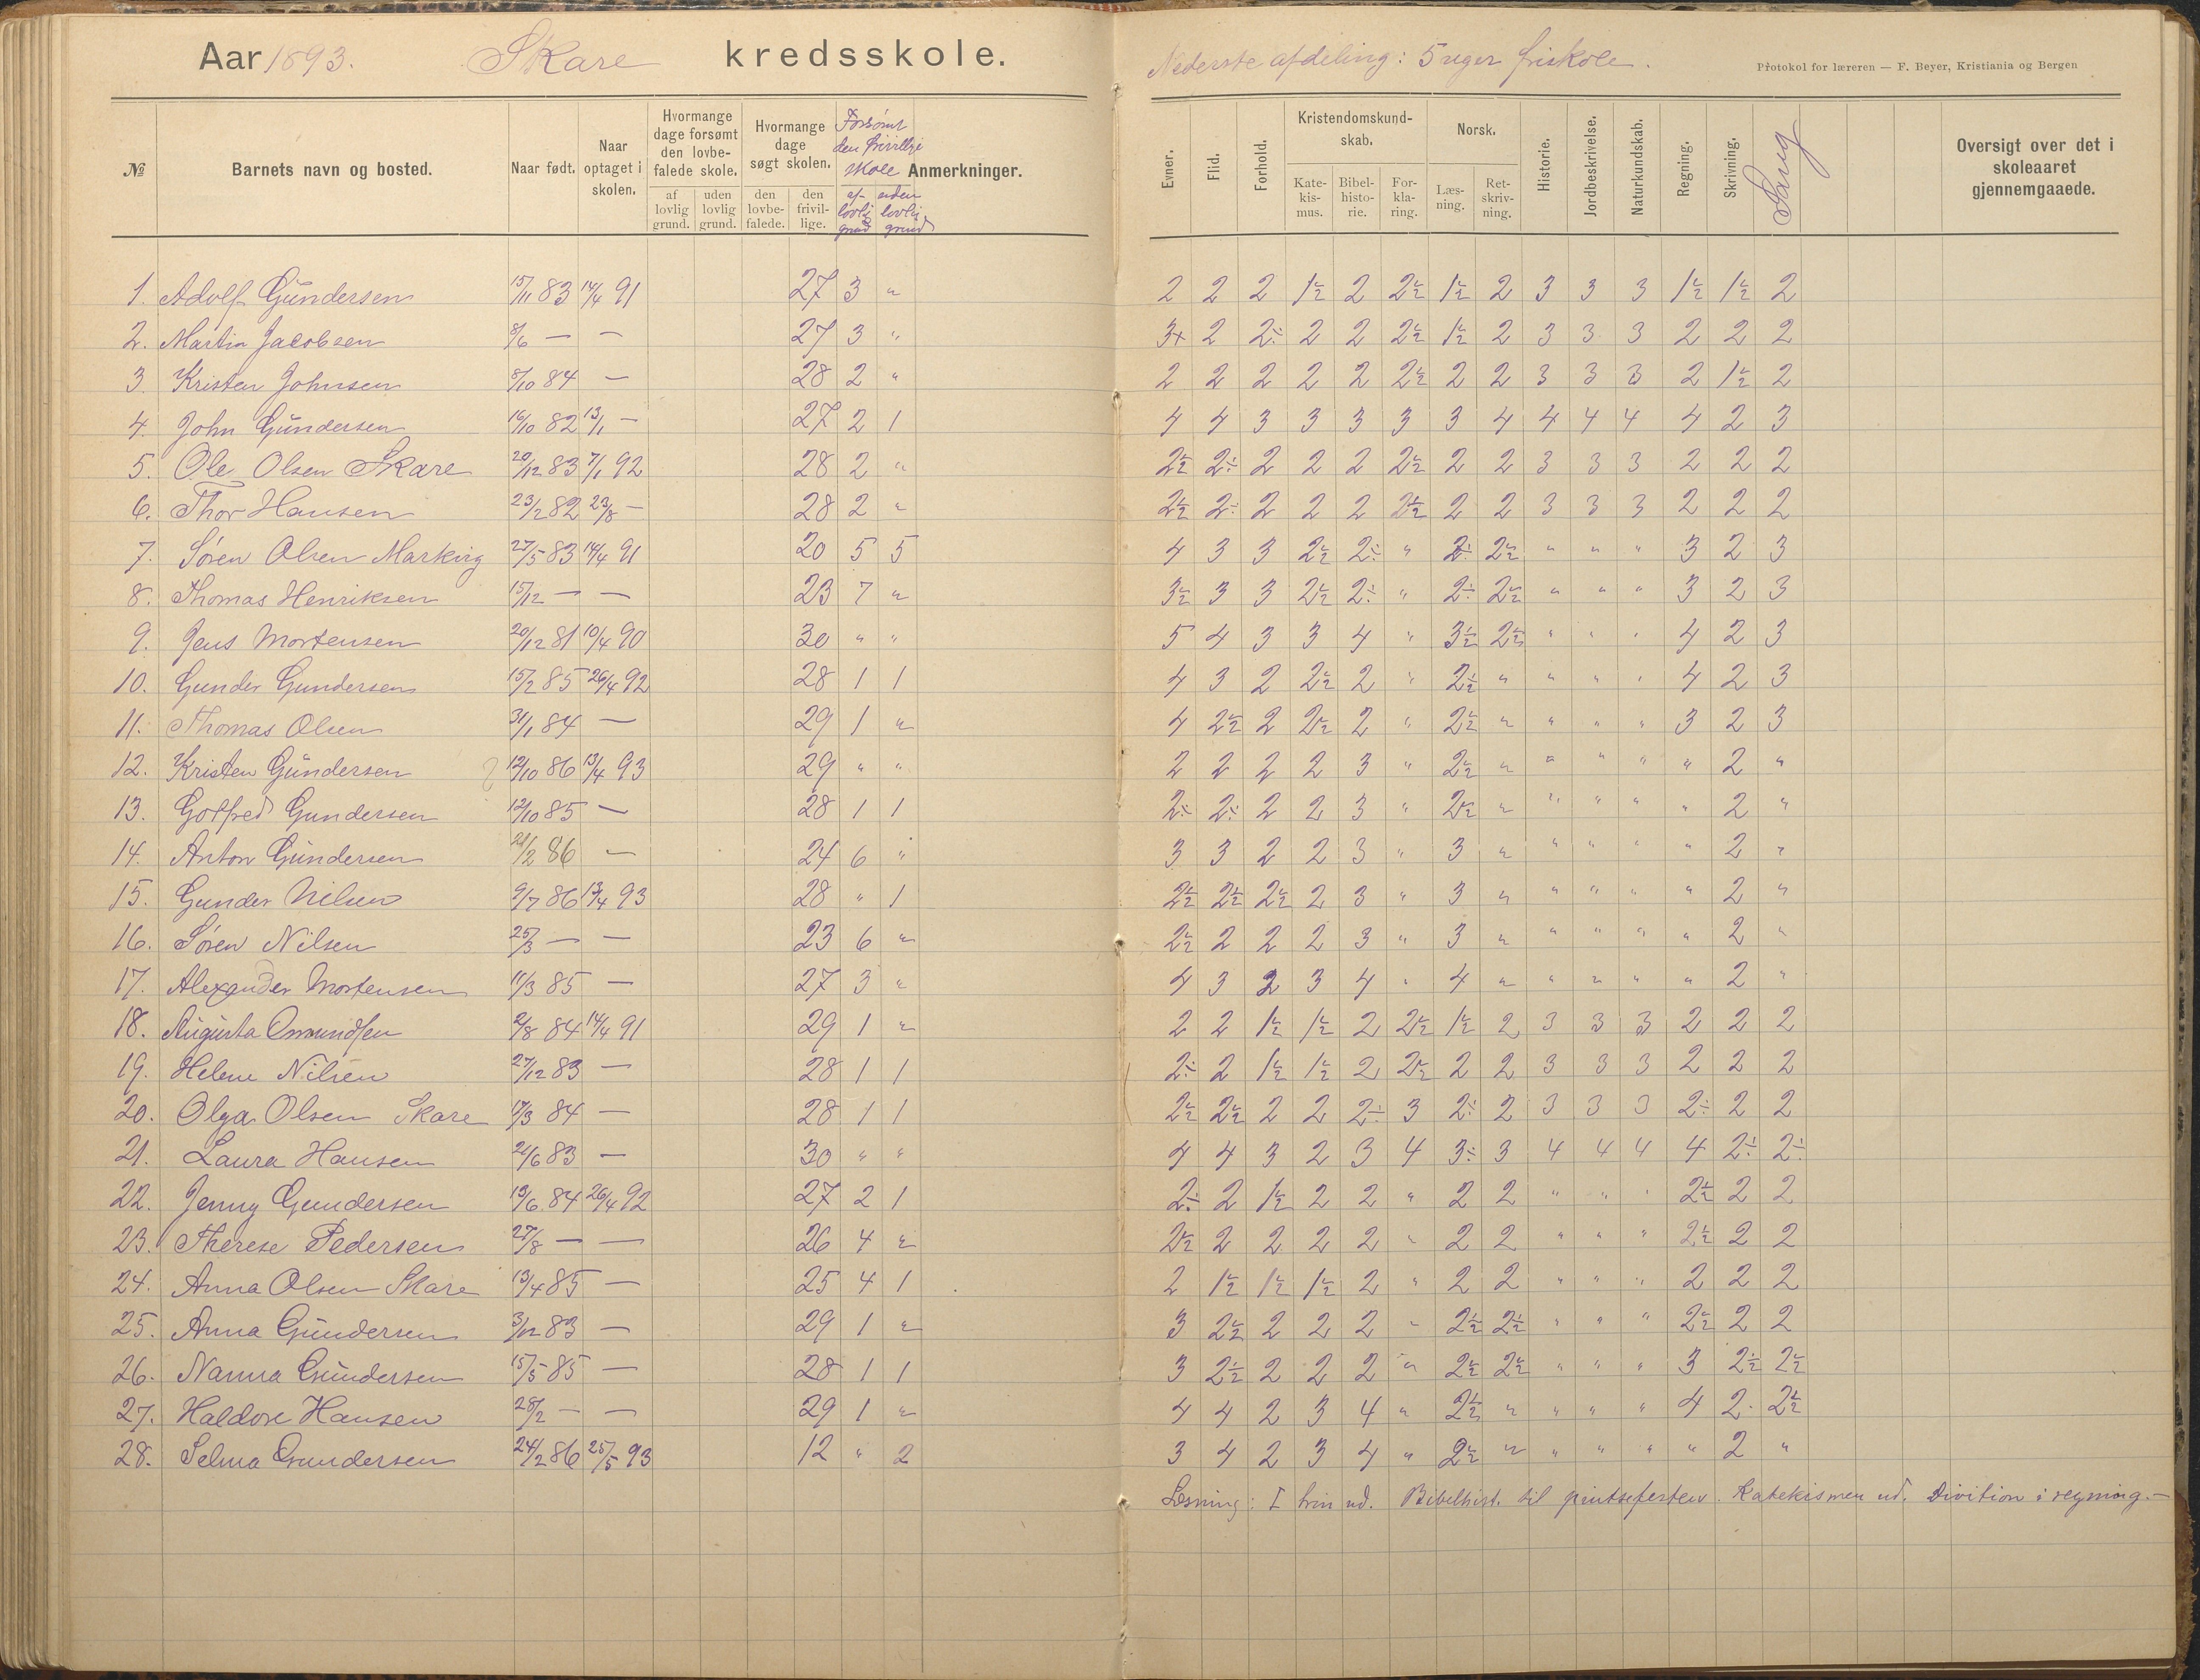 Aar 1893. Skare kredsskole.
Nederste afdeling: 5 uger friskole.
Protokol for læreren — F. Beyer, Kristiania og Bergen
№ Barnets navn og bosted. Naar født. Naar optaget i skolen. Hvormange dage forsømt den lovbefalede skole. af lovlig grund. uden lovlig grund. Hvormange dage søgt skolen. den lovbefalede. den frivillige. Forsømt den frivillige skole af lovlig grund uden lovlig grund Anmerkninger.
Evner. Flid. Forhold. Kristendomskundskab. Katekismus. Bibelhistorie. Forklaring. Norsk. Læsning. Retskrivning. Historie. Jordbeskrivelse. Naturkundskab. Regning. Skrivning. Sang Oversigt over det i skoleaaret gjennemgaaede.
1. Adolf Gundersen 15/11 83 14/4 91 27 3 " 2 2 2 1½ 2 2½ 1½ 2 3 3 3 1½ 1½ 2
2. Martin Jacobsen 8/6 — — 27 3 " 3+ 2 2÷ 2 2 2½ 1½ 2 3 3 3 2 2 2
3. Kristen Johnsen 8/10 84 — 28 2 " 2 2 2 2 2 2½ 2 2 3 3 3 2 1½ 2
4. John Gundersen 16/10 82 13/1 — 27 2 1 4 4 3 3 3 3 3 4 4 4 4 4 2 3
5. Ole Olsen Skare 20/12 83 7/1 92 28 2 " 2½ 2÷ 2 2 2 2½ 2 2 3 3 3 2 2 2
6. Thor Hansen 23/2 82 23/8 — 28 2 " 2½ 2÷ 2 2 2 2½ 2 2 3 3 3 2 2 2
7. Søren Olsen Markvig 27/5 83 14/4 91 20 5 5 4 3 3 2½ 2÷ " 2÷ 2½ " " " 3 2 3
8. Thomas Henriksen 15/12 — — 23 7 " 3½ 3 3 2½ 2÷ " 2÷ 2½ " " " 3 2 3
9. Jens Mortensen 20/12 81 10/4 90 30 " " 5 4 3 3 4 " 3½ 2½ " " " 4 2 3
10. Gunder Gundersen 15/2 85 26/4 92 28 1 1 4 3 2 2½ 2 " 2½ " " " " 4 2 3
11. Thomas Olsen 31/1 84 — 29 1 " 4 2½ 2 2½ 2 " 2½ " " " " 3 2 3
12. Kristen Gundersen 12/10 86 13/4 93 29 " " 2 2 2 2 3 " 2½ " " " " " 2 "
13. Gotfred Gundersen 12/10 85 — 28 1 1 2÷ 2÷ 2 2 3 " 2½ " " " " " 2 "
14. Anton Gundersen 21/2 86 — 24 6 " 3 3 2 2 3 " 3 " " " " " 2 "
15. Gunder Nilsen 9/7 86 13/4 93 28 " 1 2½ 2½ 2½ 2 3 " 3 " " " " " 2 "
16. Søren Nilsen 25/3 — — 23 6 " 2½ 2 2 2 3 " 3 " " " " " 2 "
17. Alexander Mortensen 11/3 85 — 27 3 " 4 3 2 3 4 " 4 " " " " " 2 "
18. Augusta Osmundsen 2/8 84 14/4 91 29 1 " 2 2 1½ 1½ 2 2½ 1½ 2 3 3 3 2 2 2
19. Helene Nilsen 27/12 83 — 28 1 1 2÷ 2 1½ 1½ 2 2½ 2 2 3 3 3 2 2 2
20. Olga Olsen Skare 17/3 84 — 28 1 1 2½ 2½ 2 2 2÷ 3 2÷ 2 3 3 3 2÷ 2 2
21. Laura Hansen 21/6 83 — 30 " " 4 4 3 2 3 4 3÷ 3 4 4 4 4 2÷ 2÷
22. Jenny Gundersen 13/6 84 26/4 92 27 2 1 2÷ 2 1½ 2 2 " 2 2 " " " 2½ 2 2
23. Therese Pedersen 27/8 — — 26 4 " 2½ 2 2 2 2 " 2 2 " " " 2½ 2 2
24. Anna Olsen Skare 13/4 85 — 25 4 1 2 1½ 1½ 1½ 2 " 2 2 " " " 2 2 2
25. Anna Gundersen 3/12 83 — 29 1 " 3 2½ 2 2 2 " 2½ 2½ " " " 2½ 2 2
26. Nanna Gundersen 15/5 85 — 28 1 1 3 2½ 2 2 2 " 2½ 2½ " " " 3 2½ 2½
27. Haldore Hansen 28/2 — — 29 1 " 4 4 2 3 4 " 2½ " " " " 4 2 2½
28. Selma Gundersen 24/2 86 25/5 93 12 " 2 3 4 2 3 4 " 2½ " " " " " 2 "
Læsning: I trin ud. Bibelhist. til pintsefesten. Katekismen ud. Division i regning. —